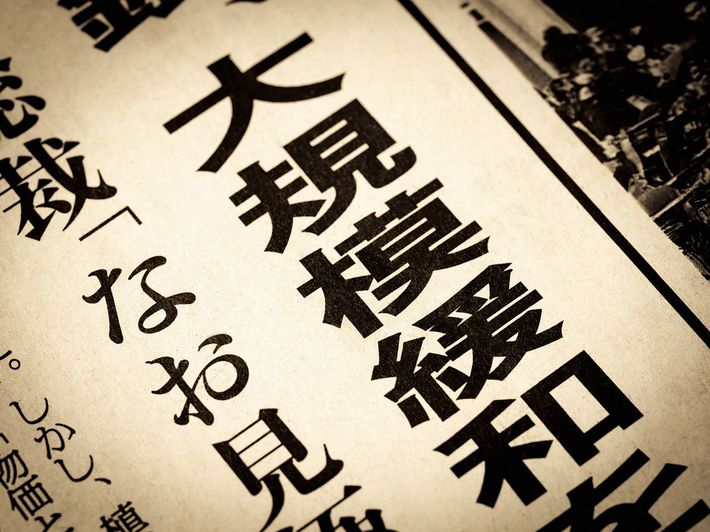 大規模緩和を
総裁「なお見
。しかし、植
物価